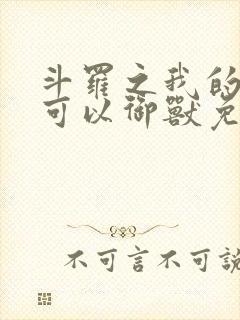 斗羅之我的
可以御獸免
不可言不可說